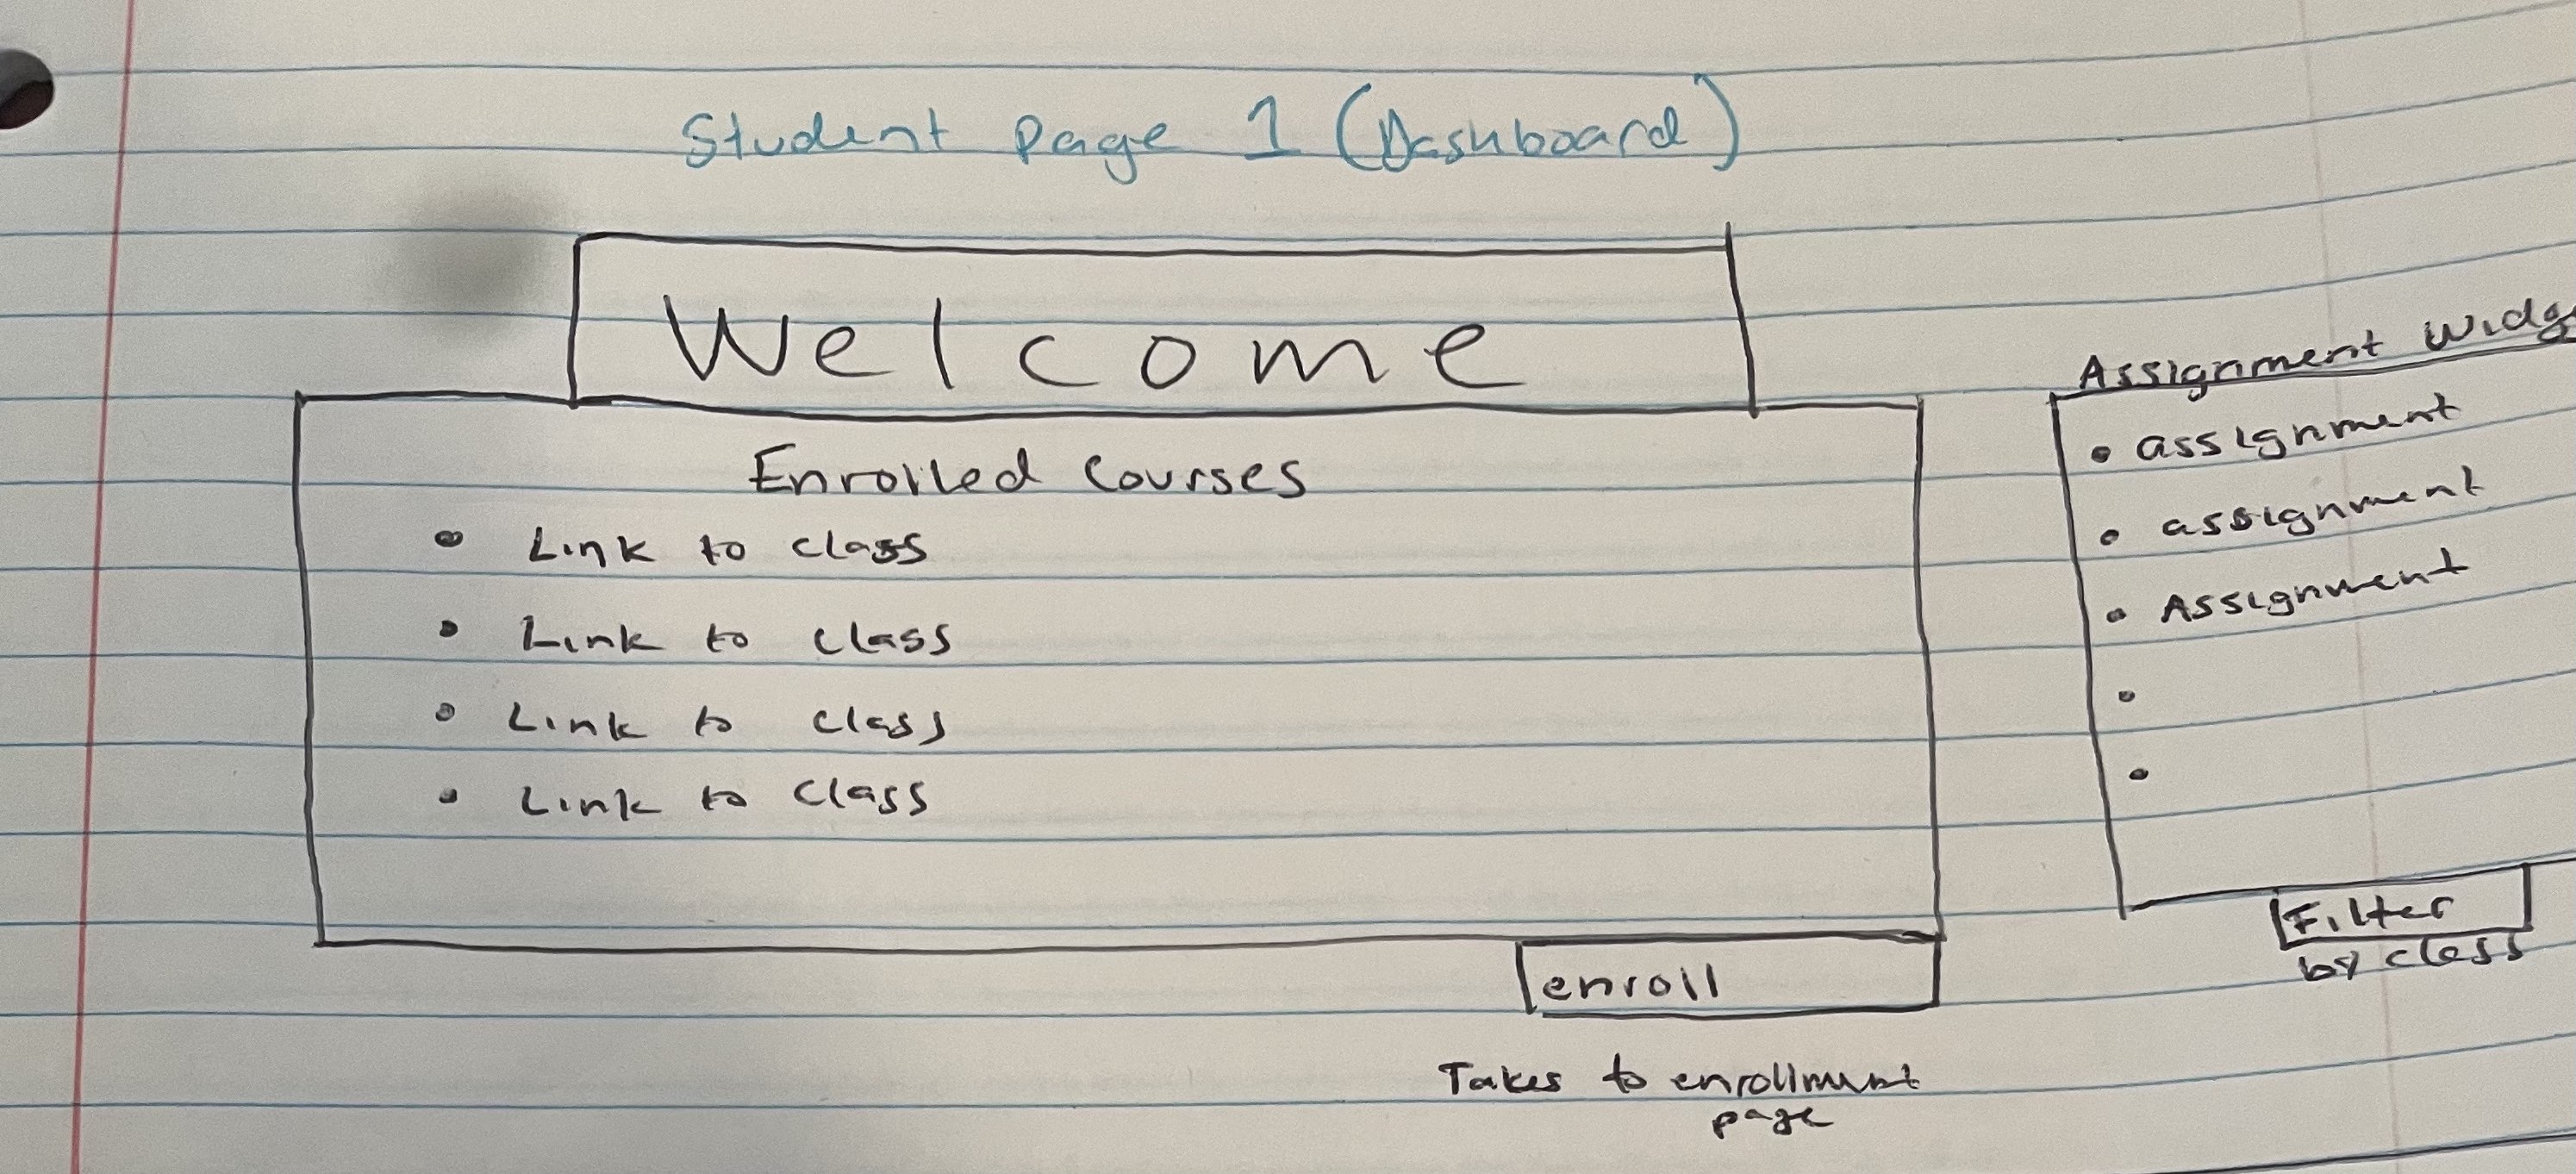 Student Page 1 (Dashboard)
Welcome
Enrolled Courses
• Link to class
• Link to class
• Link to class
• Link to class
enroll
Takes to enrollment
page
Assignment Widg
• assignment
• assignment
• Assignment
•
•
Filter
by class